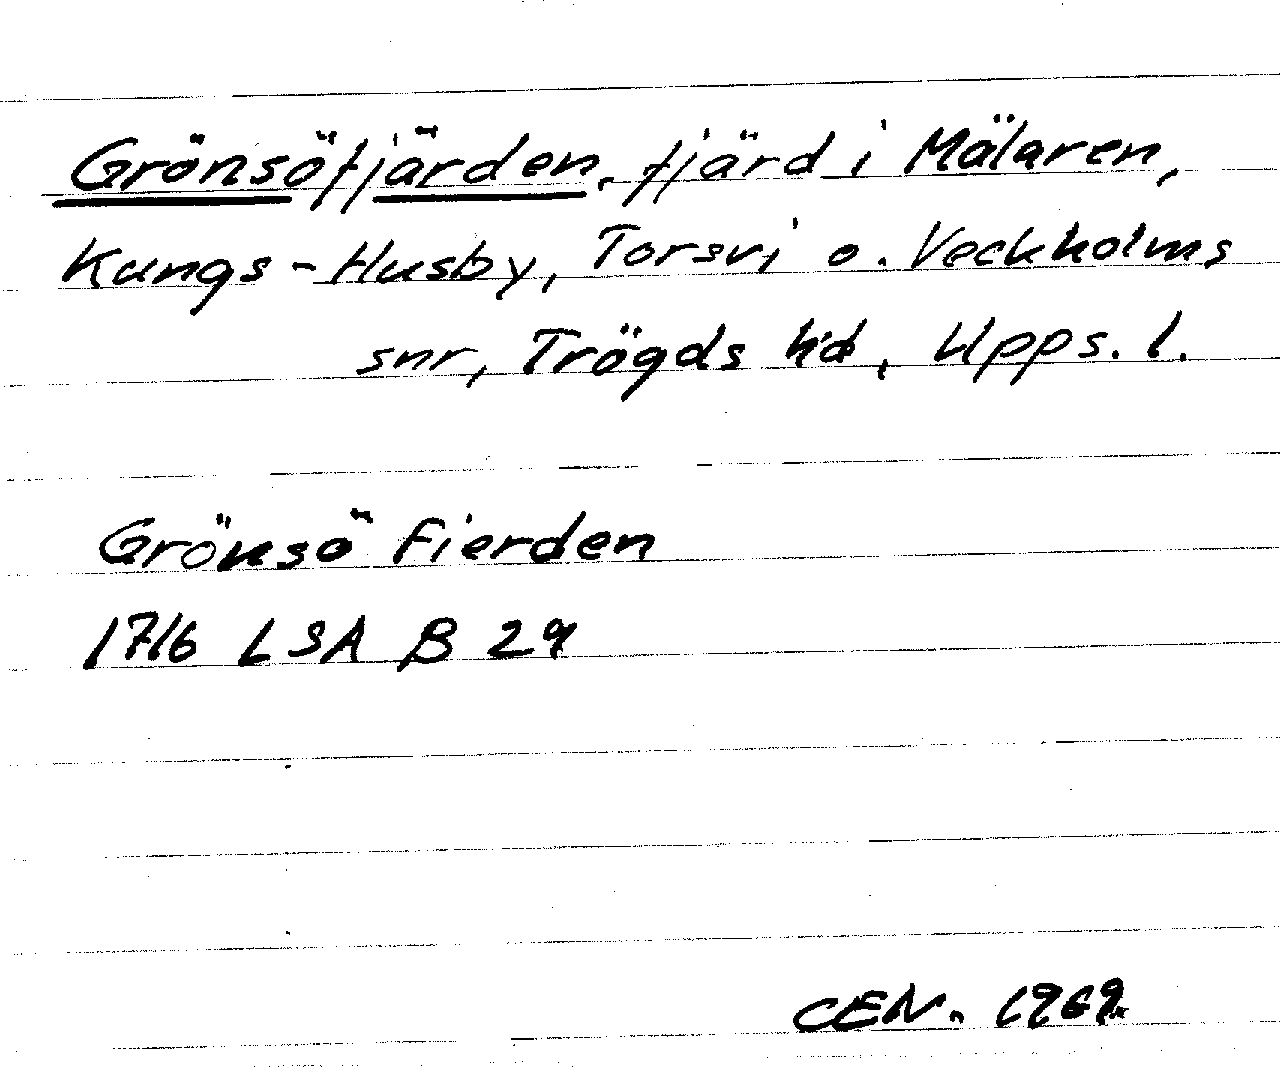 Grönsöfjärden, fjärd i Mälaren,
Kungs-Husby, Torsvi o. Veckholms
snr, Trögds hd, Upps. l.
Grönsö fierden
1716 LSA B 29
CEN. 1969.